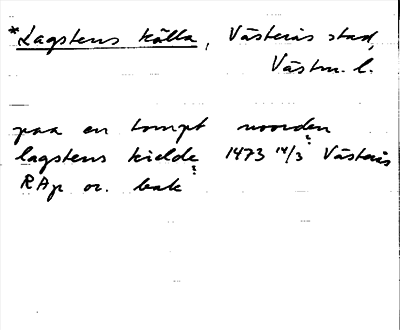 *Lagstens källa, Västerås stad,
Västm. l.
paa en tompt noorden
lagstens kielde 1473 14/3 Västerås
RAp or. bak